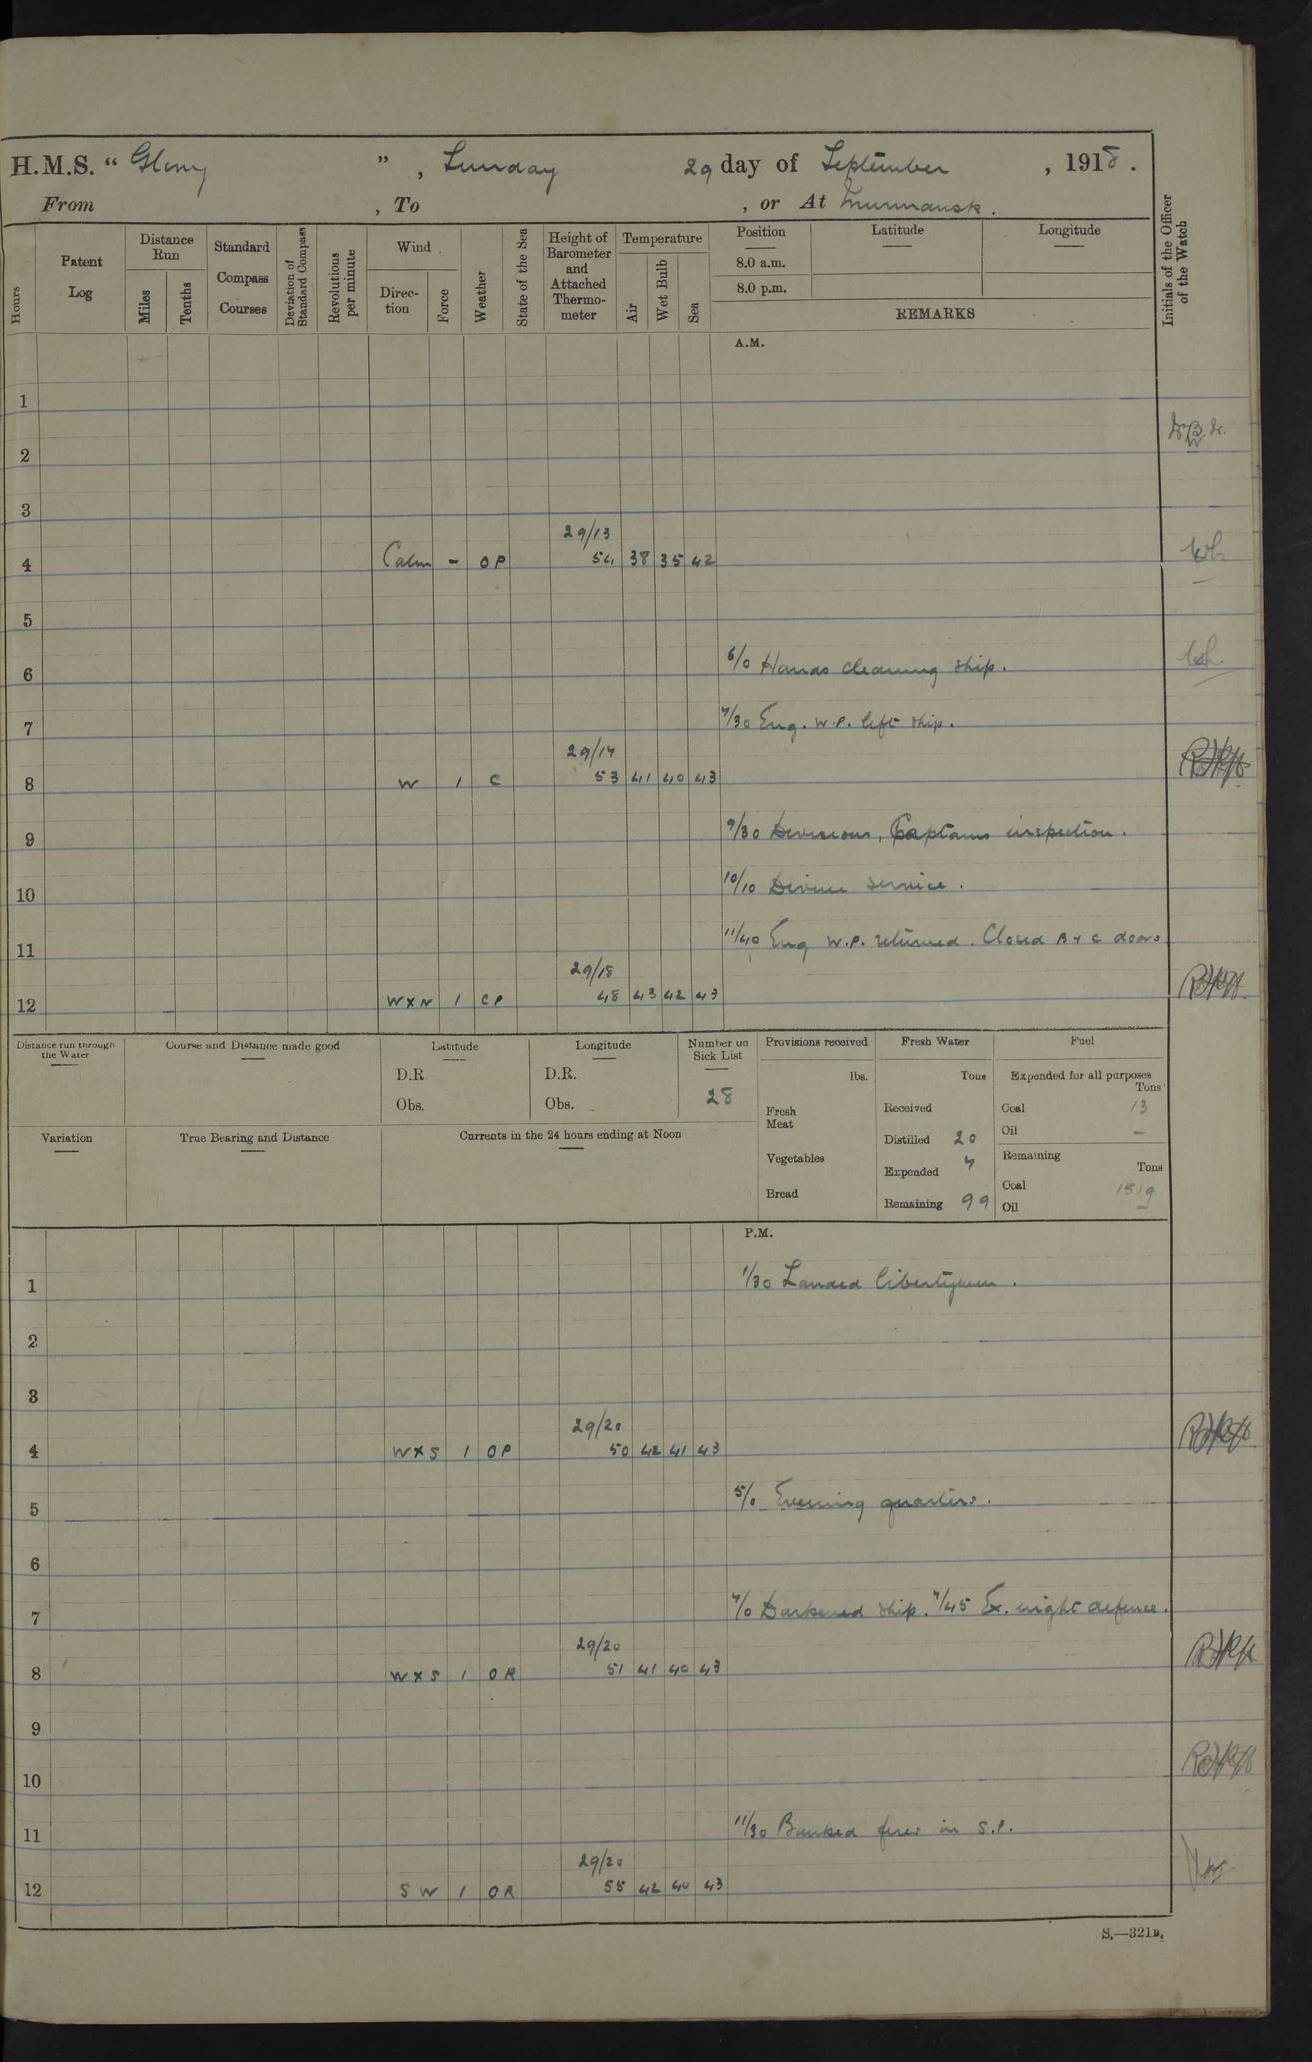 H.M.S. "Glory", Sunday 29 day of September, 1918.
From , To , or At Murmansk.
Hours
Patent Log
Distance Run
Miles
Tenths
Standard Compass Courses
Deviation of Standard Compass
Revolutions per minute
Wind
Direction
Force
Weather
State of the Sea
Height of Barometer and Attached Thermometer
Temperature
Air
Wet Bulb
Sea
Position
8.0 a.m.
8.0 p.m.
Latitude
Longitude
REMARKS
Initials of the Officer of the Watch
A.M.
1
2
3
29/13
4 Calm - OP 54 38 35 42
5
6 6/0 Hands cleaning ship.
7 7/30 Eng. W.P. left ship.
29/14
8 W 1 C 53 41 40 43
9 9/30 Divisions, Captains inspection.
10 10/10 Divine service.
11 11/40 Eng W.P. returned. Closed B & C doors
29/18
12 WXN 1 CP 48 43 42 43
Distance run through the Water
Course and Distance made good
Latitude
D.R.
Obs.
Longitude
D.R.
Obs.
Number on Sick List
28
Provisions received
lbs.
Fresh Meat
Vegetables
Bread
Fresh Water
Tons
Received
Distilled 20
Expended 7
Remaining 99
Fuel
Expended for all purposes
Tons
Coal 13
Oil -
Remaining
Tons
Coal 1519
Oil -
Variation
True Bearing and Distance
Currents in the 24 hours ending at Noon
P.M.
1 1/30 Landed libertymen.
2
3
29/20
4 WXS 1 OP 50 42 41 43
5 5/0 Evening quarters.
6
7 7/0 Darkened ship. 7/45 Ex. night defence.
29/20
8 WXS 1 OR 51 41 40 43
9
10
11 11/30 Banked fires in S.P.
29/20
12 SW 1 OR 55 42 40 43
S.—321B.